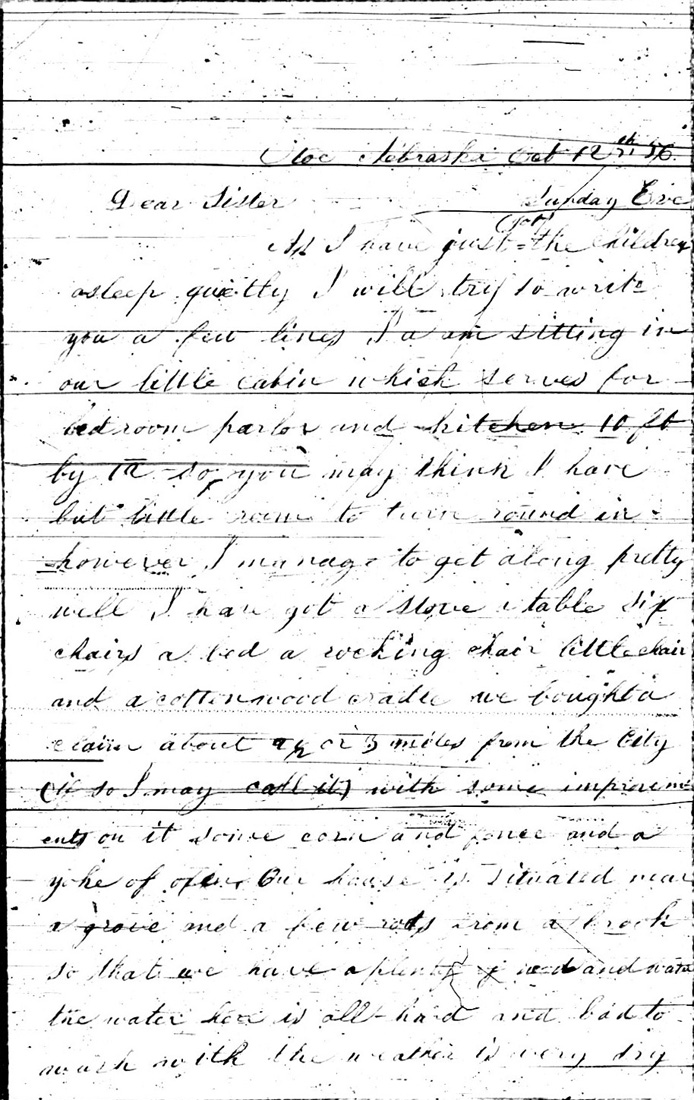 Otoe Nebraska Oct 12th 56.
Dear Sister Sunday Eve
As I have just (got) the children
asleep quietly I will try to write
you a few lines I a am sitting in
our little cabin which serves for
bedroom parlor and kitchen 10 ft
by 12 so you may think I have
but little room to turn round in
however I manage to get along pretty
well I have got a stove a table six
chairs a bed a rocking chair little chair
and a cottonwood cradle we bought a
claim about or 3 miles from the City
(if so I may call it) with some improvem
ents on it some corn and fence and a
yoke of oxen. Our house is situated near
a grove and a few rods from a brook
so that we have a plenty of wood and water
the water here is all hard and bad to
wash with the weather is very dry